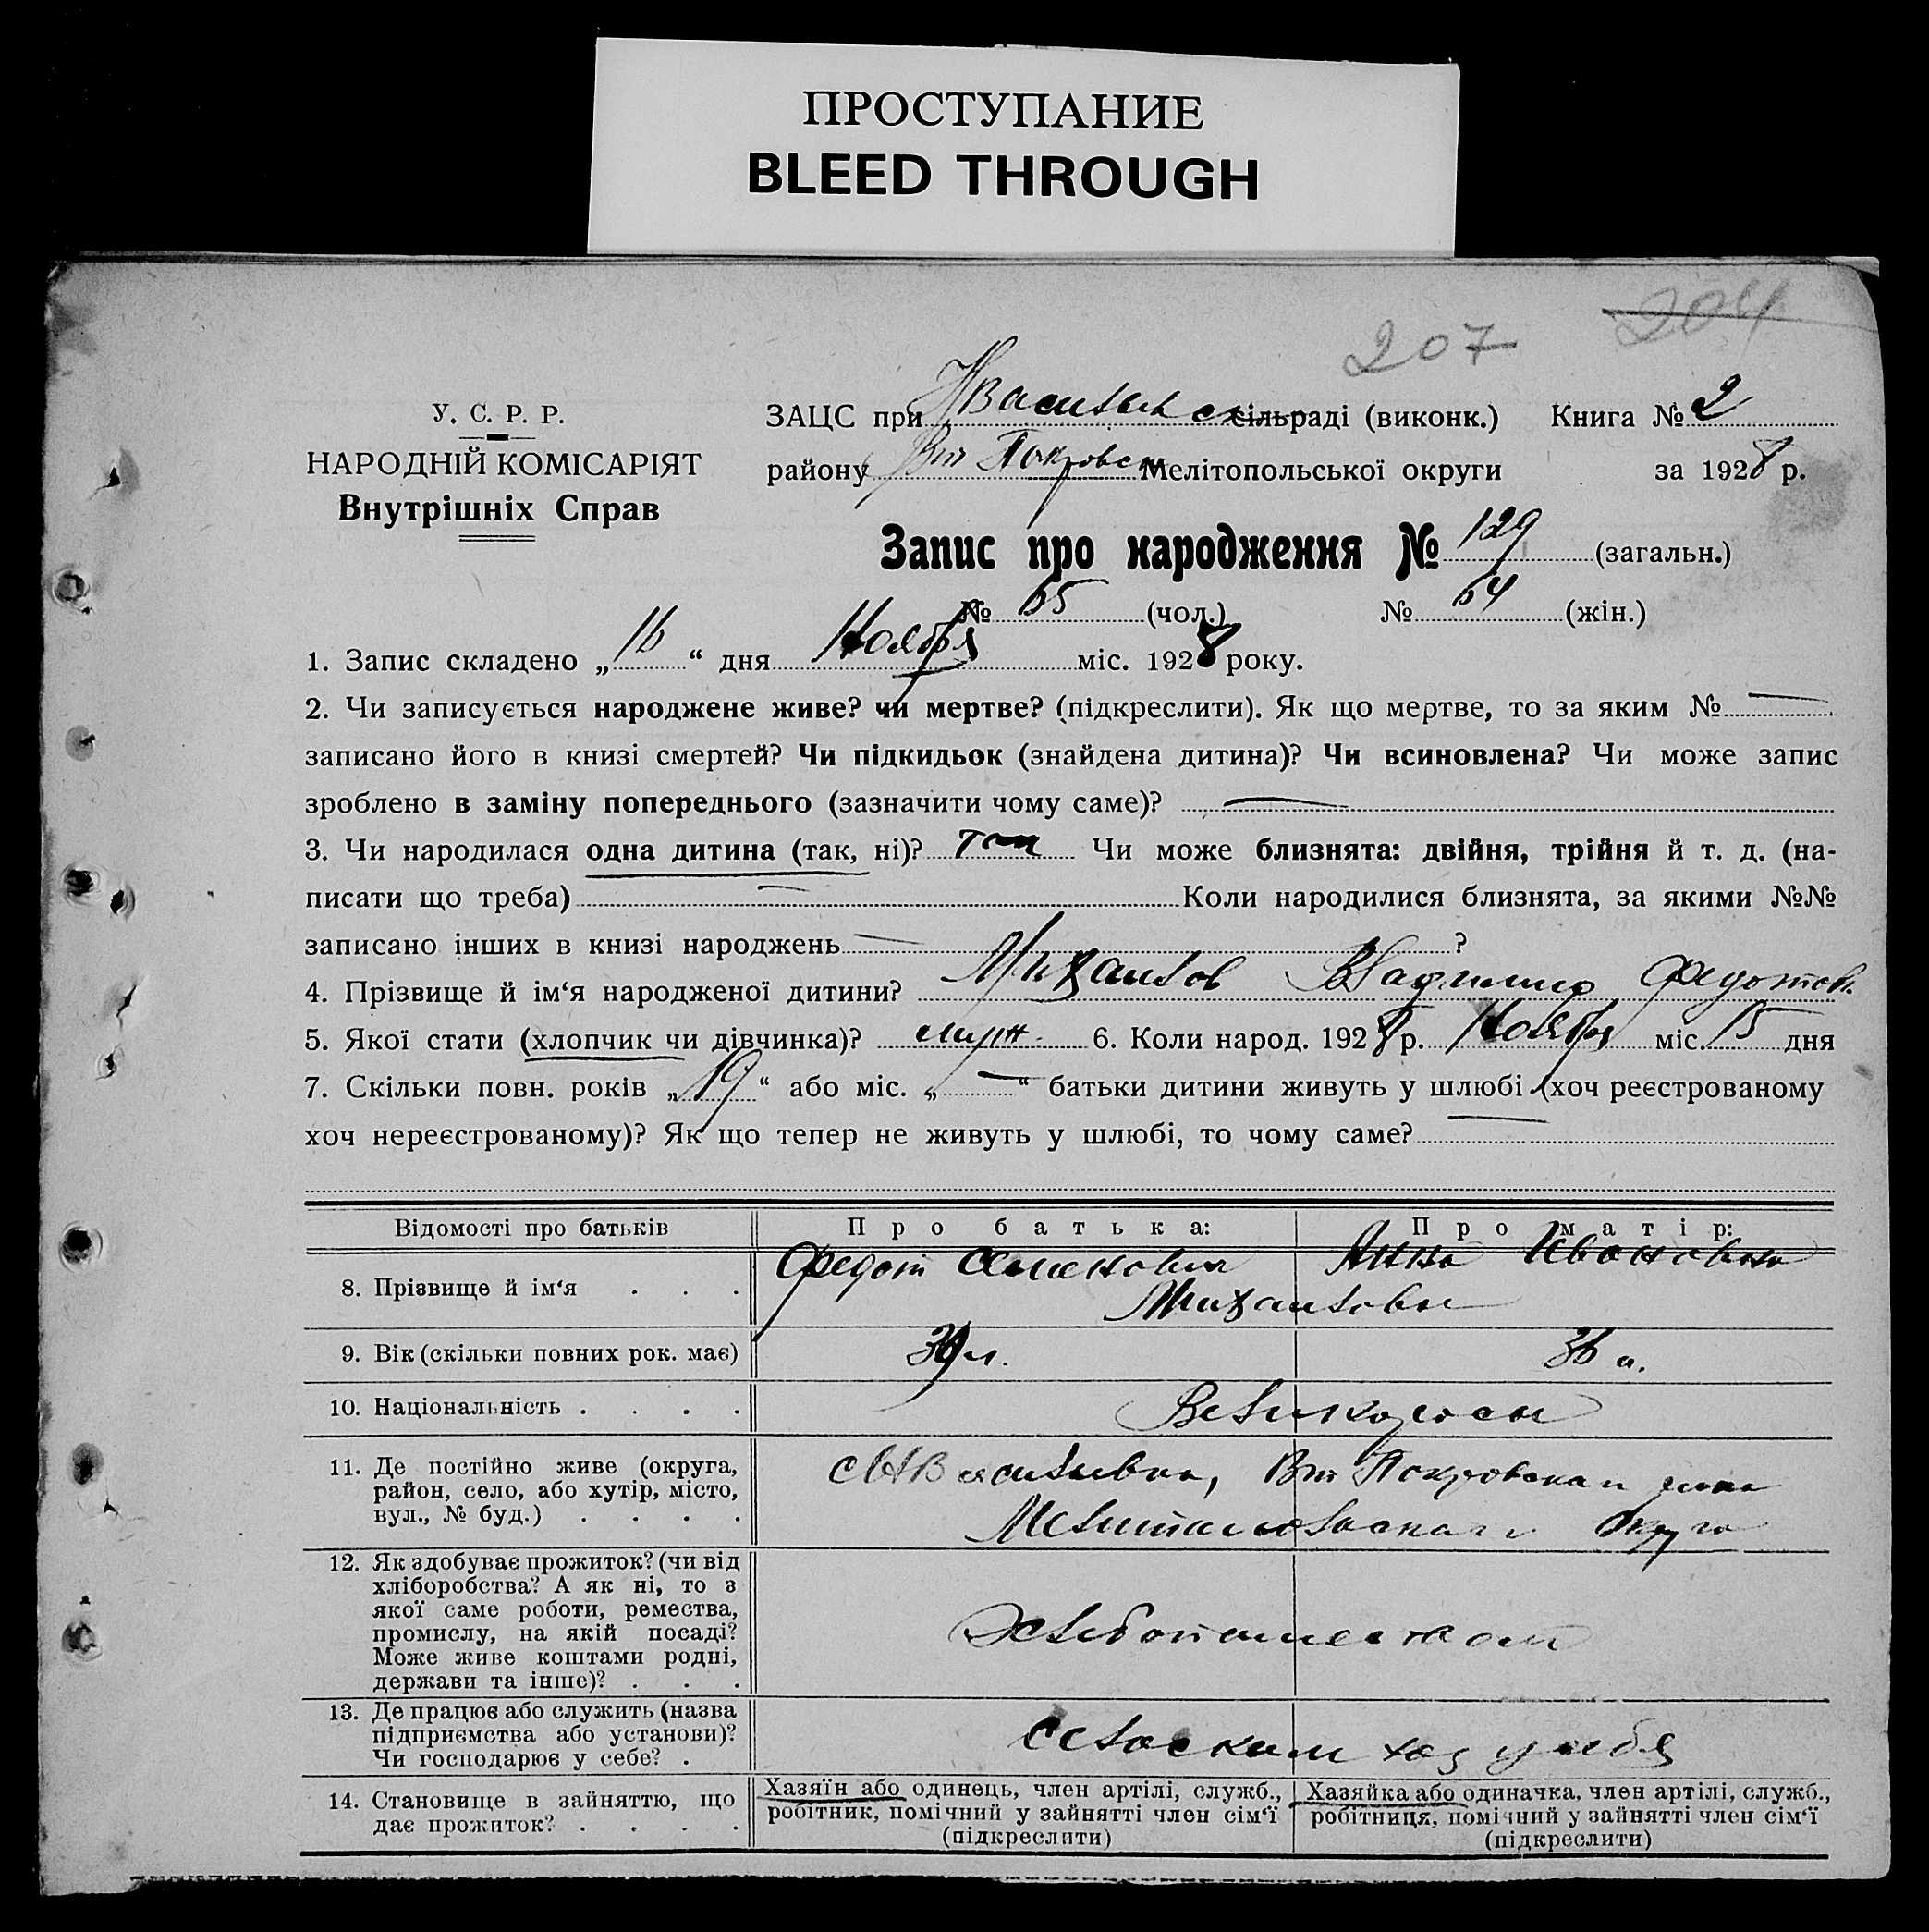 ПРОСТУПАНИЕ
BLEED THROUGH
204
207
У. С. Р. Р.
НАРОДНІЙ КОМІСАРІЯТ
Внутрішніх Справ
ЗАЦС при НВасильевск сільраді (виконк.) Книга № 2
району Вт Покровск Мелітопольської округи за 1928 р.
Запис про народження № 129 (загальн.)
№ 65 (чол.) № 64 (жін.)
1. Запис складено „16“ дня Ноября міс. 1928 року.
2. Чи записується народжене живе? чи мертве? (підкреслити). Як що мертве, то за яким № —
записано його в книзі смертей? Чи підкидьок (знайдена дитина)? Чи всиновлена? Чи може запис
зроблено в заміну попереднього (зазначити чому саме)? —
3. Чи народилася одна дитина (так, ні)? так Чи може близнята: двійня, трійня й т. д. (на-
писати що треба) — Коли народилися близнята, за якими №№
записано інших в книзі народжень — ?
4. Прізвище й ім‘я народженої дитини? Михайлов Владимир Федотов.
5. Якої стати (хлопчик чи дівчинка)? муж. 6. Коли народ. 1928 р. Ноября міс. 15 дня
7. Скільки повн. років „19“ або міс. „—“ батьки дитини живуть у шлюбі (хоч реєстрованому
хоч нереєстрованому)? Як що тепер не живуть у шлюбі, то чому саме? —
Відомості про батьків Про батька: Про матір:
8. Прізвище й ім‘я . . . Федот Семенович Анна Ивановна
Михайловы
9. Вік (скільки повних рок. має) 39 л. 36 л.
10. Національність . . . . Великороссы
11. Де постійно живе (округа,
район, село, або хутір, місто,
вул., № буд.) . . . .
с НВасильевка, Вт Покровского района
Мелитопольского Округа
12. Як здобуває прожиток? (чи від
хліборобства? А як ні, то з
якої саме роботи, ремества,
промислу, на якій посаді?
Може живе коштами родні,
держави та інше)? . . .
Хлебопашеством
13. Де працює або служить (назва
підприємства або установи)?
Чи господарює у себе? .
Сельским хоз у себя
14. Становище в зайняттю, що
дає прожиток? . . . .
Хазяїн або одинець, член артілі, служб.,
робітник, помічний у зайнятті член сім‘ї
(підкреслити)
Хазяйка або одиначка, член артілі, служб.,
робітниця, помічний у зайнятті член сім‘ї
(підкреслити)